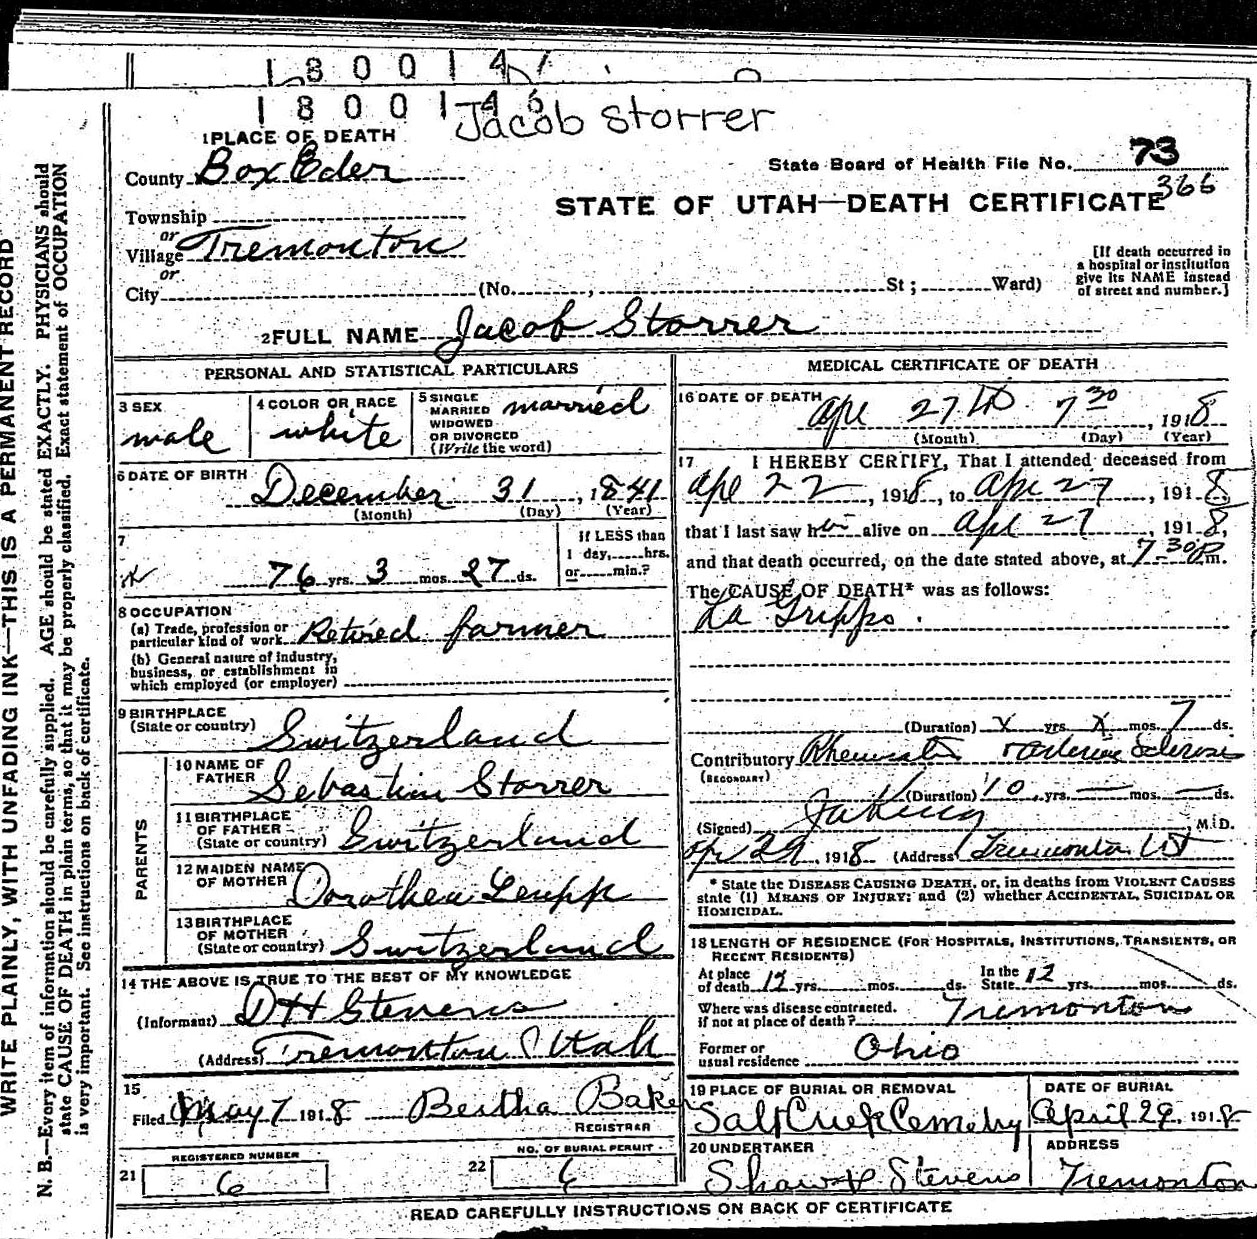 180014
180014
Jacob Storrer
1 PLACE OF DEATH
County Box Eder
State Board of Health File No. 73
366
STATE OF UTAH—DEATH CERTIFICATE
Township
or
Village Tremonton
or
City (No. , St ; Ward)
[If death occurred in
a hospital or institution
give its NAME instead
of street and number.]
2 FULL NAME Jacob Storrer
PERSONAL AND STATISTICAL PARTICULARS
3 SEX
male
4 COLOR OR RACE
white
5 SINGLE
MARRIED
WIDOWED
OR DIVORCED
(Write the word)
married
6 DATE OF BIRTH
December 31, 1841
(Month) (Day) (Year)
7
76 yrs. 3 mos. 27 ds.
If LESS than
1 day, hrs.
or min.?
8 OCCUPATION
(a) Trade, profession or
particular kind of work Retired farmer
(b) General nature of industry,
business, or establishment in
which employed (or employer)
9 BIRTHPLACE
(State or country) Switzerland
PARENTS
10 NAME OF
FATHER
Sebastian Storrer
11 BIRTHPLACE
OF FATHER
(State or country) Switzerland
12 MAIDEN NAME
OF MOTHER Dorothea Leupp
13 BIRTHPLACE
OF MOTHER
(State or country) Switzerland
14 THE ABOVE IS TRUE TO THE BEST OF MY KNOWLEDGE
(Informant) D H Stevens
(Address) Tremonton Utah
15
Filed May 7 1918 Bertha Baker
REGISTRAR
REGISTERED NUMBER
21 6
NO. OF BURIAL PERMIT
22 6
MEDICAL CERTIFICATE OF DEATH
16 DATE OF DEATH
Apr 27th 7 30, 1918
(Month) (Day) (Year)
17 I HEREBY CERTIFY, That I attended deceased from
Apr 22, 1918, to Apr 27, 1918,
that I last saw him alive on Apr 27, 1918,
and that death occurred, on the date stated above, at 7-30 P m.
The CAUSE OF DEATH* was as follows:
La Grippe.
(Duration) x yrs. x mos. 7 ds.
Contributory
(SECONDARY)
(Duration) 10 yrs. — mos. — ds.
(Signed) M.D.
Apr 29, 1918 (Address) Tremonton Ut
* State the DISEASE CAUSING DEATH, or, in deaths from VIOLENT CAUSES
state (1) MEANS OF INJURY; and (2) whether ACCIDENTAL, SUICIDAL OR
HOMICIDAL.
18 LENGTH OF RESIDENCE (FOR HOSPITALS, INSTITUTIONS, TRANSIENTS, OR
RECENT RESIDENTS)
At place
of death 12 yrs. mos. ds.
In the
State 12 yrs. mos. ds.
Where was disease contracted.
if not at place of death? Tremonton
Former or
usual residence Ohio
19 PLACE OF BURIAL OR REMOVAL
Salt Creek Cemetry
DATE OF BURIAL
April 29, 1918
20 UNDERTAKER
Shaw & Stevens
ADDRESS
Tremonton
READ CAREFULLY INSTRUCTIONS ON BACK OF CERTIFICATE
WRITE PLAINLY, WITH UNFADING INK—THIS IS A PERMANENT RECORD
N. B.—Every item of information should be carefully supplied. AGE should be stated EXACTLY. PHYSICIANS should
state CAUSE OF DEATH in plain terms, so that it may be properly classified. Exact statement of OCCUPATION
is very important. See instructions on back of certificate.